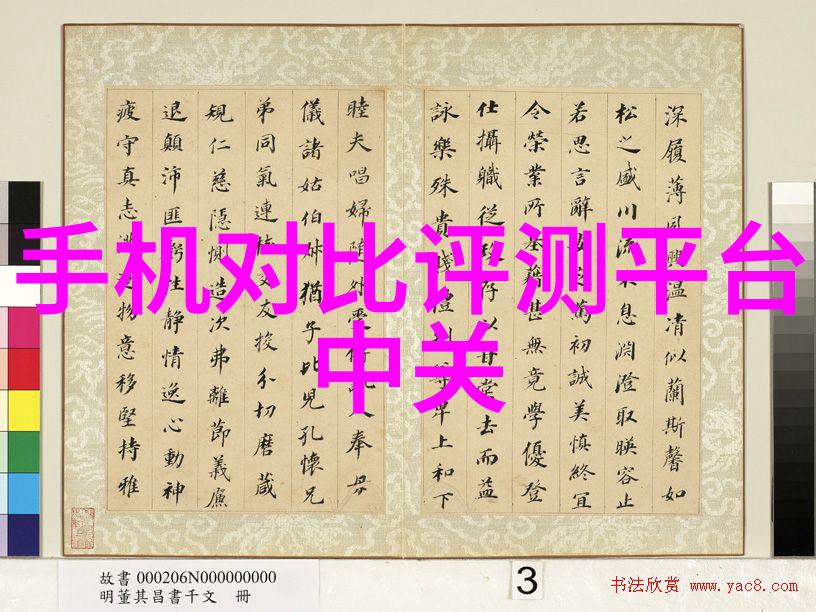 手机对比评测平台
中关
深履薄溫清似蘭斯馨如
松之盛川流不息淵澄取暎容止
若思言辭篤初誠美慎終宜
令榮業所基藉甚無竟學優登
仕攝職從政存以甘棠去而益
詠樂殊貴賤禮別尊卑上和下
睦夫唱婦隨外受入奉母
儀諸姑伯叔猶子比兒孔懷兄
弟同氣連枝交友投分切磨葴
規仁慈隱惻造次弗離節義廉
退顛沛匪虧性靜情逸心動神
疲守真志逐物意移堅持雅
故書 000206N000000000
明董其昌書千文 冊
3
书法欣赏 www.yac8.com